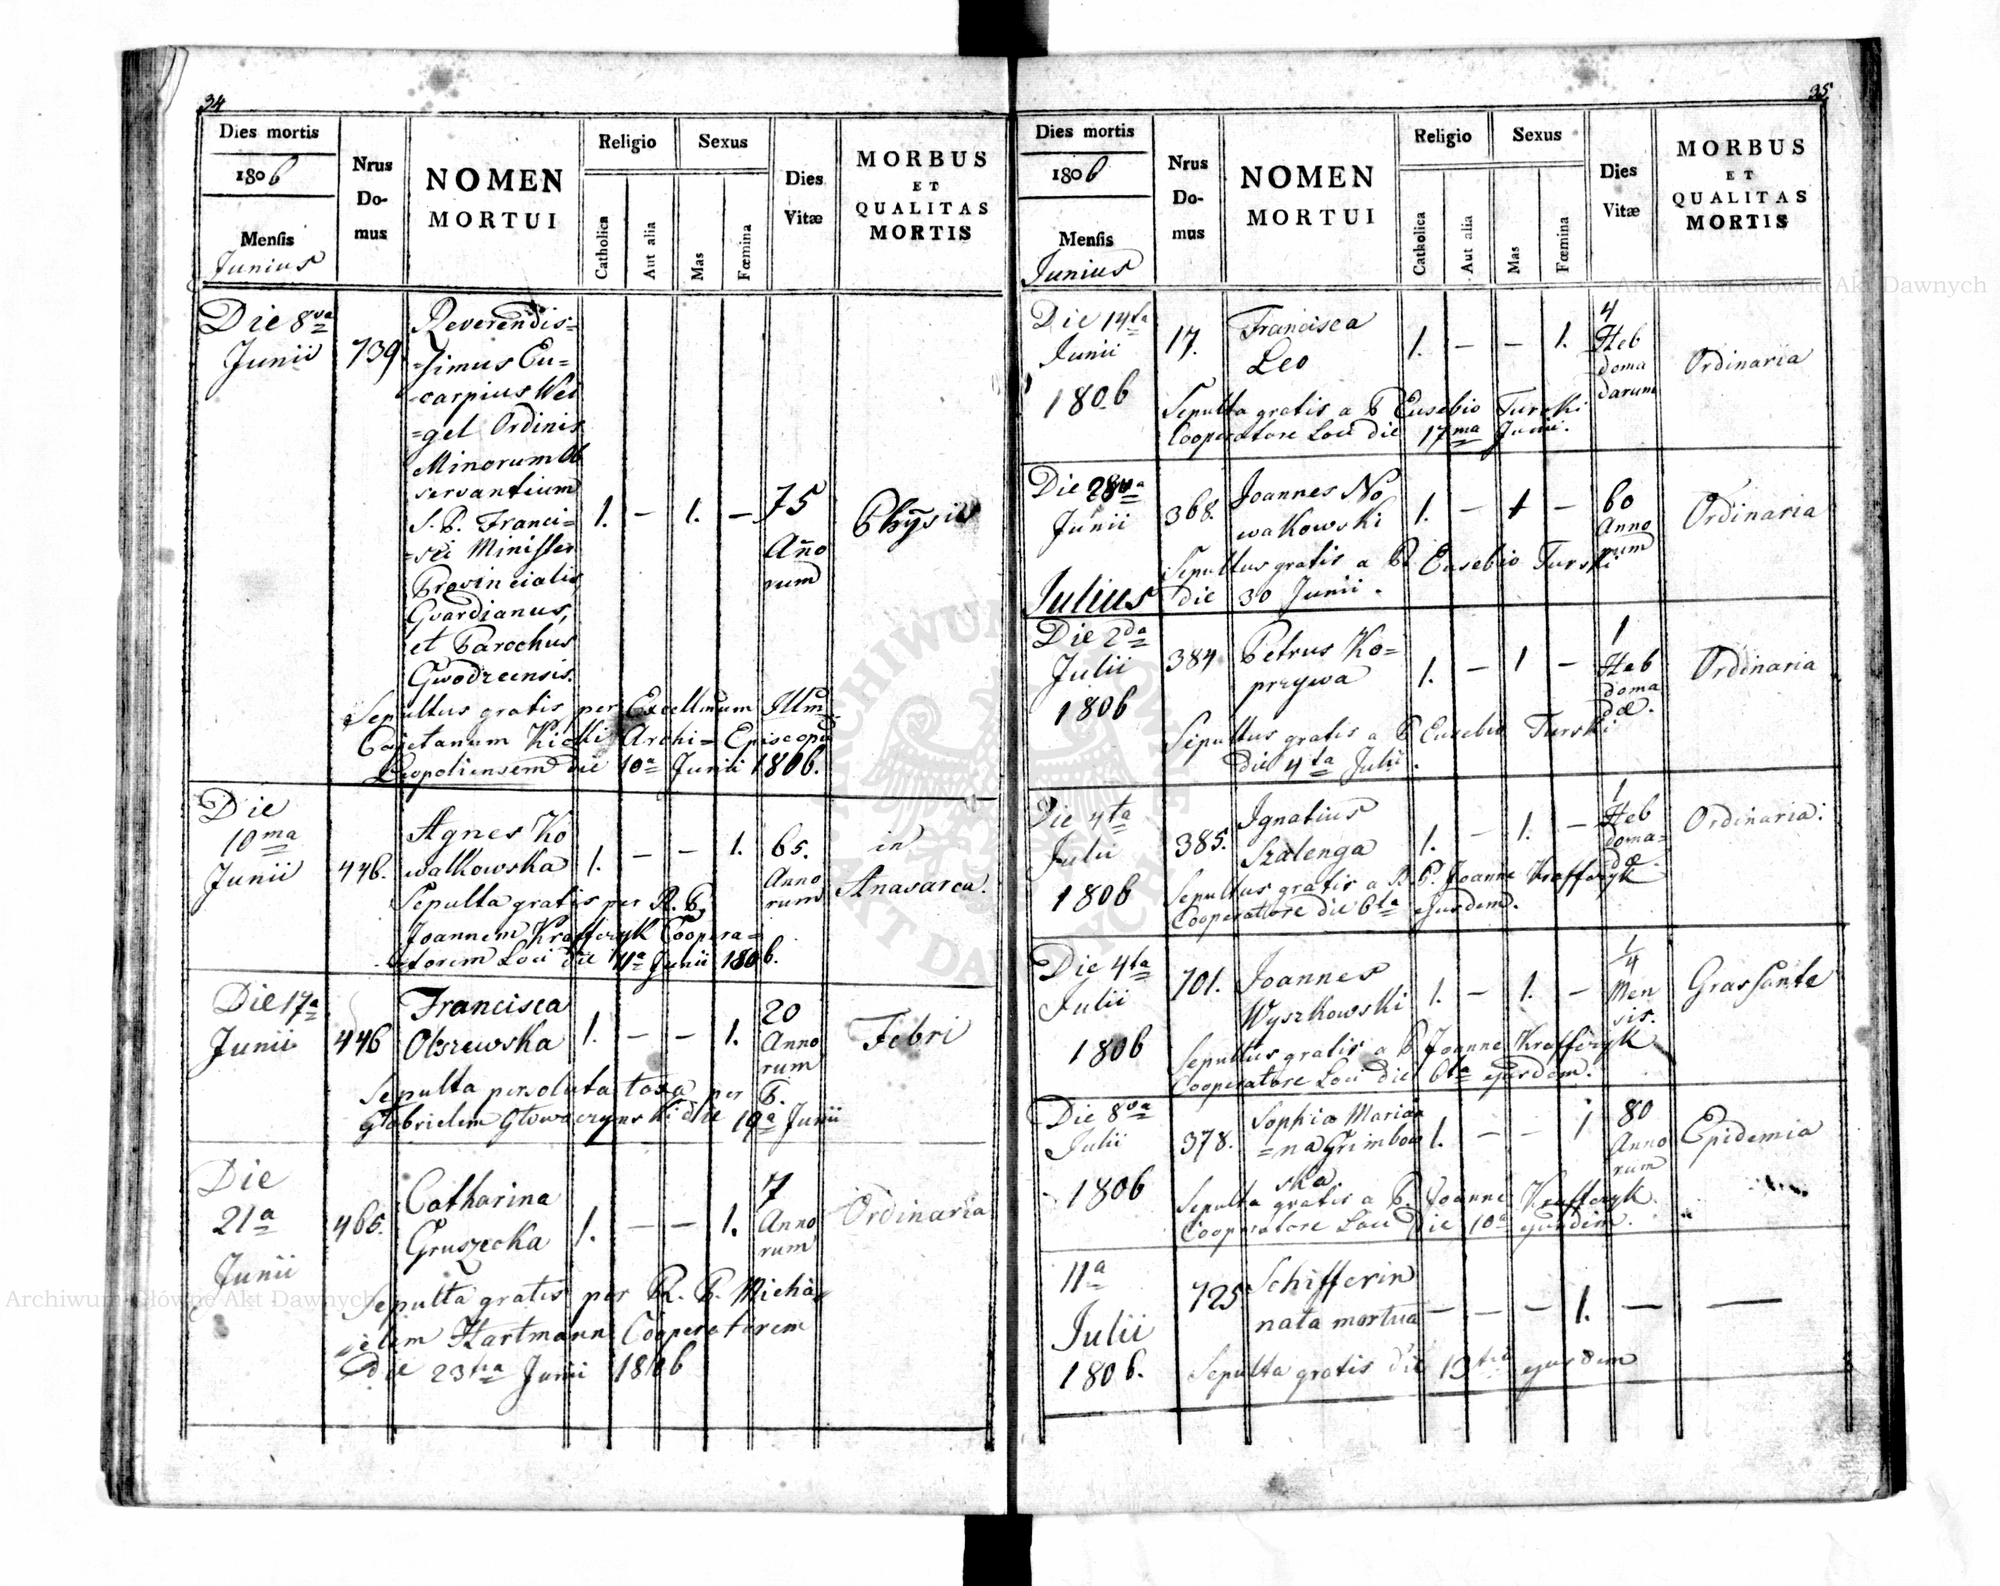 34
Dies mortis
1806
Mensis
Junius
Nrus
Do-
mus
NOMEN
MORTUI
Religio
Catholica
Aut alia
Sexus
Mas
Fœmina
Dies
Vitæ
MORBUS
ET
QUALITAS
MORTIS
Die 8va
Junii
739
Reverendis=
=simus Eu=
carpius Wei
=gel Ordinis
Minorum Ob
servantium
S. P. Franci=
=sci Minister
Provincialis,
Gvardianus,
et Parochus
Gwodzcensis.
1. — 1. —
75
Anno
rum
Physis
Sepultus gratis per Excellmum Illm
Cajetanum Kicki Archi= Episcopu
Leopoliensem die 10a Junii 1806.
Die
10ma
Junii
446.
Agnes Ko
walkowska
1. — — 1.
65.
Anno
rum
in
Anasarca.
Sepulta gratis per R. P.
Joannem Krafferzyk Coopera=
torem Loci die 11a Junii 1806.
Die 17a
Junii
446
Francisca
Olszewska
1. — — 1.
20
Anno
rum
Febri
Sepulta persoluta taxa per P.
Gabrielem Głowaczynski die 19a Junii
Die
21a
Junii
465.
Catharina
Gruszecka
1. — — 1.
7
Anno
rum
Ordinaria
Sepulta gratis per R. P. Micha=
=elem Hartmann Cooperatorem
die 23tia Junii 1806
35
Dies mortis
1806
Mensis
Junius
Nrus
Do-
mus
NOMEN
MORTUI
Religio
Catholica
Aut alia
Sexus
Mas
Fœmina
Dies
Vitæ
MORBUS
ET
QUALITAS
MORTIS
Die 14ta
Junii
1806
17.
Francisca
Leo
1. — — 1.
4
Heb
doma
darum
Ordinaria
Sepulta gratis a P Eusebio Turski
Cooperatore Loci die 17ma Junii.
Die 28va
Junii
368.
Joannes No
wakowski
1. — 1 —
60
Anno
rum
Ordinaria
Sepultus gratis a P. Eusebio Turski
die 30 Junii.
Julius
Die 2da
Julii
1806
384
Petrus Ko=
przywa
1. — 1 —
1
Heb
doma
dæ.
Ordinaria
Sepultus gratis a P Eusebio Turski
die 4ta Julii.
Die 4ta
Julii
1806
385.
Ignatius
Szalenga
1. — 1. —
1
Heb
doma=
dæ.
Ordinaria.
Sepultus gratis a R. P. Joanne Krafferzyk
Cooperatore die 6ta ejusdem.
Die 4ta
Julii
1806
701.
Joannes
Wyszkowski
1. — 1. —
1/4
Men
sis.
Grassante
Sepultus gratis a P. Joanne Krafferzyk
Cooperatore Loci die 6ta ejusdem.
Die 8va
Julii
1806
378.
Sophia Maria
=na Grimbow
ska
1. — — 1
80
Anno
rum
Epidemia
Sepulta gratis a P. Joanne Krafferzyk
Cooperatore Loci die 10a ejusdem.
11a
Julii
1806.
725
Schifferin
nata mortua
— — — 1. — —
Sepulta gratis die 13tia ejusdem
Archiwum Główne Akt Dawnych
Archiwum Główne Akt Dawnych
ARCHIWUM GŁÓWNE AKT DAWNYCH